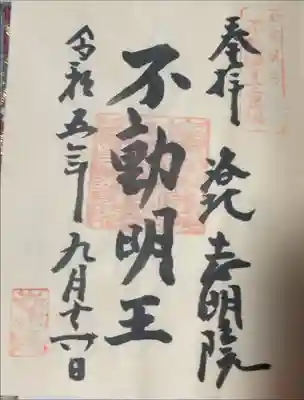 奉拝 洛北 志明院
不動明王
令和五年九月十一日